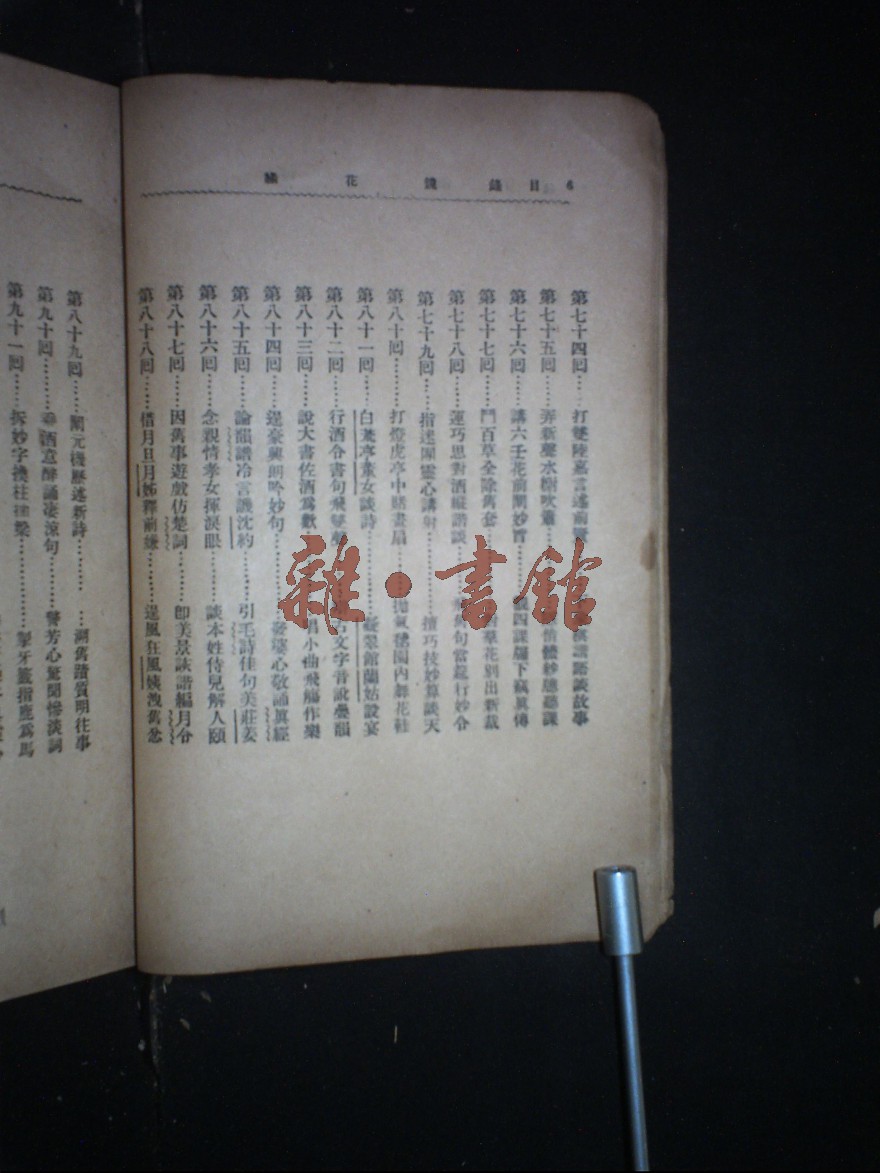 6 目錄 鏡 花 緣
第七十四回……打雙陸嘉言述前
談故事
第七十五回……弄新聲水榭吹簫
課
第七十六回……講六壬花前闡妙旨
四課牖下竊真傳
第七十七回……鬥百草全除舊套
草花別出新裁
第七十八回……運巧思對酒縱諧談
句當筵行妙令
第七十九回……指迷團靈心講射……擅巧技妙算談天
第八十回……打燈虎亭中賭畫扇……氣毬園內舞花鞋
第八十一回……白荒亭董女談詩……凝翠館蘭姑設宴
第八十二回……行酒令書句飛雙聲
古文字音訛疊韻
第八十三回……說大書佐酒為歡
唱小曲飛觴作樂
第八十四回……逞豪興朗吟妙句……發婆心敬誦真經
第八十五回……論韻譜冷言譏沈約……引毛詩佳句美莊姜
第八十六回……念親情孝女揮淚眼……談本姓侍兒解人頤
第八十七回……因舊事遊戲仿楚詞……即美景詼諧編月令
第八十八回……借月旦月姊釋前嫌……逞風狂風姨洩舊忿
第八十九回……闡元機歷述新詩……溯舊蹟質明往事
第九十回……乘酒意醉誦淒涼句……警芳心驚聞慘淡詞
第九十一回……拆妙字換柱抽梁……掣牙籤指鹿為馬
雜·書館